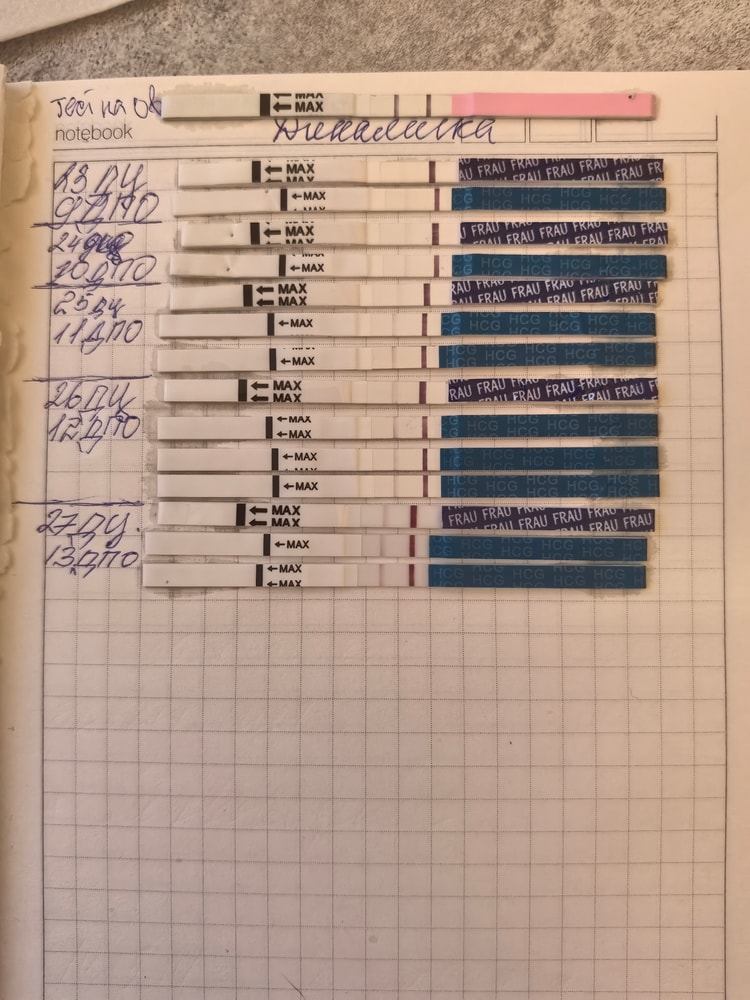 Тест на Ов
MAX
MAX
notebook
Динамика
23 ДЦ
MAX
MAX
FRAU FRAU FRAU FRAU FRAU
9 ДПО
MAX
HCG HCG HCG HCG
24
MAX
MAX
FRAU FRAU FRAU FRAU FRAU
10 ДПО
MAX
MAX
HCG HCG HCG HCG
25 ДЦ
MAX
MAX
FRAU FRAU FRAU FRAU FRAU
11 ДПО
MAX
HCG HCG HCG HCG
MAX
HCG HCG HCG HCG
26 ДЦ
MAX
MAX
FRAU FRAU FRAU FRAU FRAU
12 ДПО
MAX
MAX
HCG HCG HCG HCG
MAX
MAX
HCG HCG HCG HCG
MAX
HCG HCG HCG HCG
27 ДЦ.
MAX
MAX
FRAU FRAU FRAU FRAU FRAU
13 ДПО
MAX
HCG HCG HCG HCG
MAX
MAX
HCG HCG HCG HCG